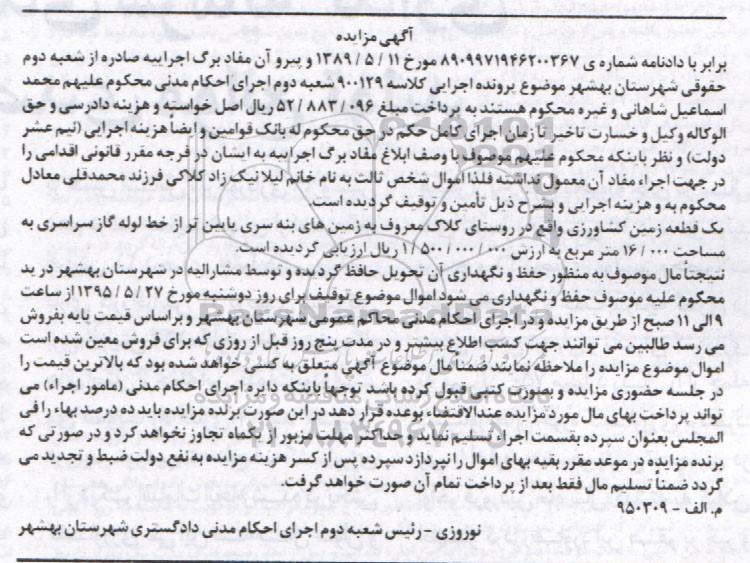 آگهی مزایده
برابر با دادنامه شماره ی ۸۹۰۹۹۷۱۹۴۶۲۰۰۳۶۷ مورخ ۱۱ / ۵ / ۱۳۸۹ و پیرو آن مفاد برگ اجراییه صادره از شعبه دوم
حقوقی شهرستان بهشهر موضوع پرونده اجرایی کلاسه ۹۰۰۱۲۹ شعبه دوم اجرای احکام مدنی محکوم علیهم محمد
اسمعیل شاهانی و غیره محکوم هستند به پرداخت مبلغ ۰۹۶ / ۸۸۳ / ۵۲ ریال اصل خواسته و هزینه دادرسی و حق
الوکاله وکیل و خسارت تاخیر تا زمان اجرای کامل حکم در حق محکوم له بانک قوامین و ایضا هزینه اجرایی (نیم عشر
دولت) و نظر باینکه محکوم علیهم موصوف با وصف ابلاغ مفاد برگ اجراییه به ایشان در فرجه مقرر قانونی اقدامی را
در جهت اجراء مفاد آن معمول نداشته فلذا اموال شخص ثالث به نام خانم لیلا نیک زاد کلاکی فرزند محمدقلی معادل
محکوم به و هزینه اجرایی و بشرح ذیل تأمین و توقیف گردیده است.
یک قطعه زمین کشاورزی واقع در روستای کلاک معروف به زمین های بنه سری پایین تر از خط لوله گاز سراسری به
مساحت ۱۶/۰۰ متر مربع به ارزش ۰۰۰ / ۰۰۰ / ۵۰۰ / ۱ ریال ارزیابی گردیده است.
نتیجتا مال موصوف به منظور حفظ و نگهداری آن تحویل حافظ گردیده و توسط مشارالیه در شهرستان بهشهر در ید
محکوم علیه موصوف حفظ و نگهداری می شود اموال موضوع توقیف برای روز دوشنبه مورخ ۲۷ / ۵ / ۱۳۹۵ از ساعت
۹ الی ۱۱ صبح از طریق مزایده و در اجرای احکام مدنی محاکم عمومی شهرستان بهشهر و بر اساس قیمت پایه بفروش
می رسد طالبین می توانند جهت کسب اطلاع بیشتر و در مدت پنج روز قبل از روزی که برای فروش معین شده است
اموال موضوع مزایده را ملاحظه نمایند ضمنا مال موضوع آگهی متعلق به کسی خواهد شده بود که بالاترین قیمت را
در جلسه حضوری مزایده و بصورت کتبی قبول کرده باشد توجها باینکه داده اجرای احکام مدنی (مامور اجراء) می
تواند پرداخت بهای مال مورد مزایده عندالاقتضاء بوعده قرار دهد در این صورت برنده مزایده باید ده درصد بهاء را فی
المجلس بعنوان سپرده بقسمت اجراء تسلیم نماید و حداکثر مهلت مزبور از یکماه تجاوز نخواهد کرد و در صورتی که
برنده مزایده در موعد مقرر بقیه بهای اموال را نپردازد سپرده پس از کسر هزینه مزایده به نفع دولت ضبط و تجدید می
گردد ضمنا تسلیم مال فقط بعد از پرداخت تمام آن صورت خواهد گرفت.
م. الف - ۹۵۰۳۰۹
نوروزی - رئیس شعبه دوم اجرای احکام مدنی دادگستری شهرستان بهشهر
ParsNamadData